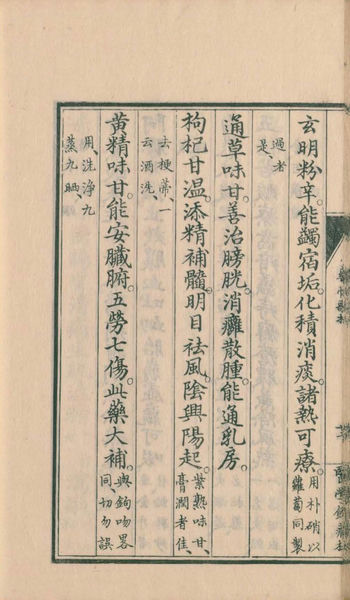 玄明粉辛。能蠲宿垢。化積消痰。諸熱可療。用朴硝以蘿蔔同製
過者是、
通草味甘。善治膀胱。消癰散腫。能通乳房。
枸杞甘温。添精補髓。明目祛風。陰興陽起。紫熟味甘、膏潤者佳、
去梗蒂、一云酒洗、
黄精味甘。能安臓腑。五勞七傷。此藥大補。與鉤吻畧同切勿誤
用、洗淨九蒸九晒、